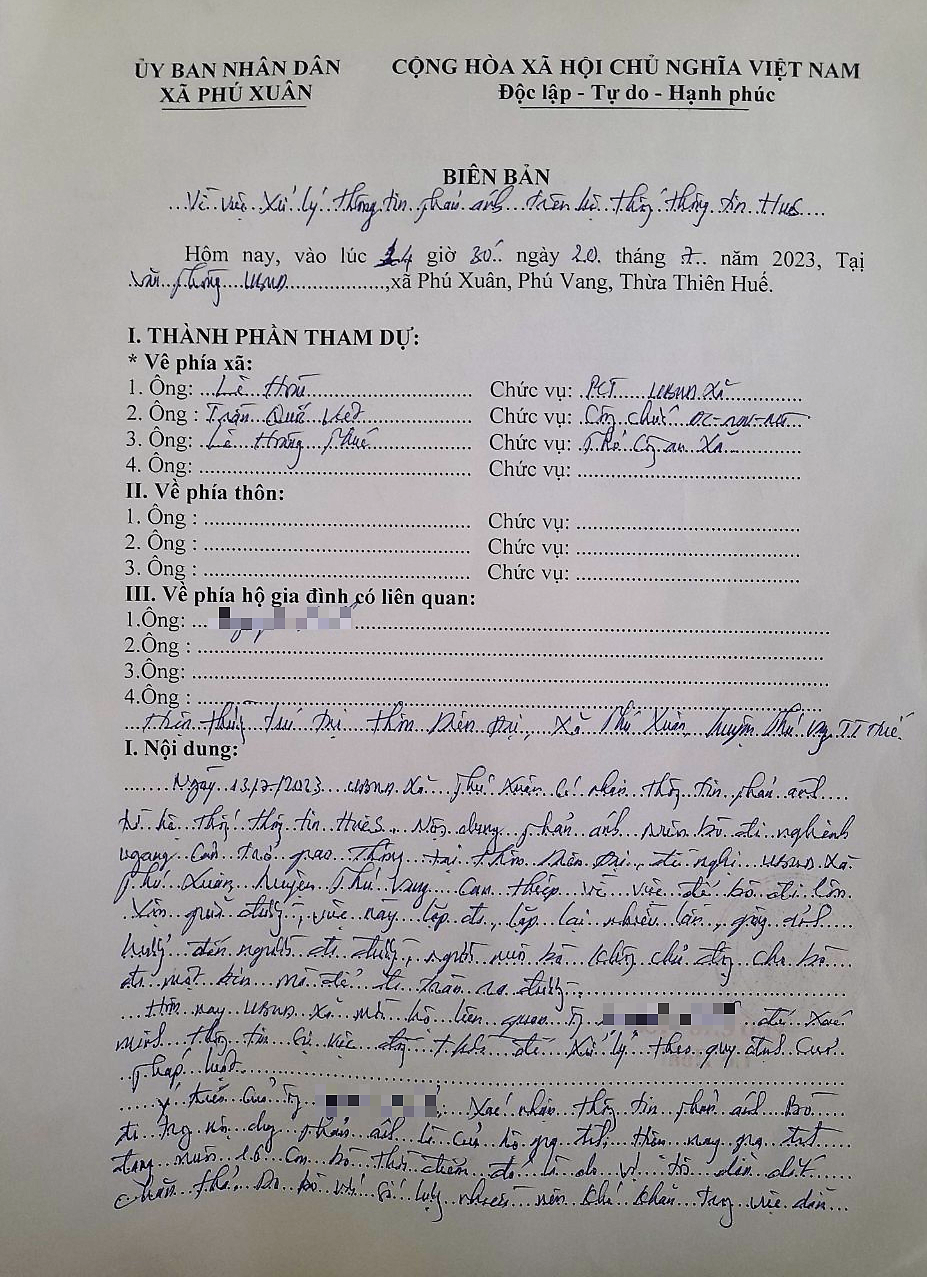 ỦY BAN NHÂN DÂN
XÃ PHÚ XUÂN
CỘNG HÒA XÃ HỘI CHỦ NGHĨA VIỆT NAM
Độc lập - Tự do - Hạnh phúc
BIÊN BẢN
Về việc xử lý thông tin phản ánh trên hệ thống thông tin HueS
Hôm nay, vào lúc 14 giờ 30 ngày 20 tháng 7 năm 2023, Tại
Văn phòng UBND, xã Phú Xuân, Phú Vang, Thừa Thiên Huế.
I. THÀNH PHẦN THAM DỰ:
* Về phía xã:
1. Ông: Lê Chức vụ: PCT UBND Xã
2. Ông : Trần Quốc Việt Chức vụ: Công chức ĐC-NN-MT
3. Ông: Lê Hoàng Chức vụ: Phó Công an Xã
4. Ông: Chức vụ:
II. Về phía thôn:
1. Ông : Chức vụ:
2. Ông : Chức vụ:
3. Ông : Chức vụ:
III. Về phía hộ gia đình có liên quan:
1.Ông:
2.Ông :
3.Ông:
4.Ông :
Hiện thường trú tại thôn Diên Đại, Xã Phú Xuân huyện Phú Vang, TT Huế
I. Nội dung:
Ngày 13/7/2023 UBND xã Phú Xuân có nhận thông tin phản ánh
từ hệ thống thông tin HueS. Nội dung phản ánh nuôi bò đi nghênh
ngang cản trở giao thông tại thôn Diên Đại, đề nghị UBND xã
Phú Xuân, huyện Phú Vang can thiệp về việc để bò đi lộn
xộn giữa đường, việc này lặp đi, lặp lại nhiều lần, gây ảnh
hưởng đến người đi đường, người nuôi bò không chủ động cho bò
đi một bên mà để đi tràn ra đường.
Hôm nay UBND xã mời hộ liên quan ông để xác
minh thông tin sự việc đúng thực tế để xử lý theo quy định của
pháp luật.
Ý kiến của ông xác nhận thông tin phản ánh Bò
đi trong nội dung phản ánh là của hộ gia đình, hiện nay gia đình
đang nuôi 16 con bò thời điểm đó là do
chăn thả. Do Bò số lượng nhiều nên khó khăn trong việc dẫn